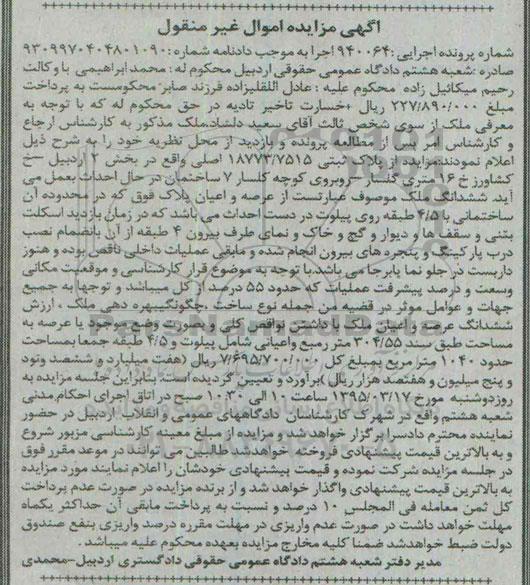 آگهی مزایده اموال غیر منقول
شماره پرونده اجرایی: ۹۴۰۰۶۴ اجرا به موجب دادنامه شماره: ۹۳۰۹۹۷۰۴۰۴۸۰۱۰۹۰
صادره: شعبه هشتم دادگاه عمومی حقوقی اردبیل محکوم له: محمد ابراهیمی با وکالت
رحیم میکائیل زاده محکوم علیه: عادل اللقلیزاده فرزند صابر محکومست به پرداخت
مبلغ ۲۲۷/۸۹۰/۰۰۰ ریال +خسارت تاخیر تادیه در حق محکوم له که با توجه به
معرفی ملک از سوی شخص ثالث آقای سعید دلشاد،ملک مذکور به کارشناس ارجاع
و کارشناس امر پس از مطالعه پرونده و بازدید از محل نظریه خود را به شرح ذیل
اعلام نمودند:مزایده از پلاک ثبتی ۱۸۷۷۳/۷۵۱۵ اصلی واقع در بخش ۲ اردبیل –خ
کشاورز خ ۱۶ متری گلسار –روبروی کوچه گلسار ۷ ساختمان در حال احداث بعمل می
آید. ششدانگ ملک موصوف عبارتست از عرصه و اعیان پلاک فوق که در محدوده آن
ساختمانی با ۴/۵ طبقه روی پیلوت در دست احداث می باشد که در زمان بازدید اسکلت
بتنی و سقف ها و دیوار و گچ و خاک و نمای طرف بیرون ۴ طبقه از آن بانضمام نصب
درب پارکینگ و پنجره های بیرون انجام شده و مابقی عملیات داخلی ناقص بوده و هنوز
داربست در جلو نما پابرجا می باشد.با توجه به موضوع قرار کارشناسی و موقعیت مکانی
وسعت و درصد پیشرفت عملیات که حدود ۵۵ درصد از کل میباشد و توجها به جمیع
جهات و عوامل موثر در قضیه من جمله نوع ساخت ،چگونگی بهره دهی ملک ، ارزش
ششدانگ عرصه و اعیان ملک با داشتن نواقص کلی و بصورت وضع موجود با عرصه به
مساحت طبق سند ۳۰۴/۵۵ متر مربع واعیانی شامل پیلوت و ۴/۵ طبقه جمعا بمساحت
حدود ۱۰۴۰ متر مربع بمبلغ کل ۷/۶۹۵/۷۰۰/۰۰۰ ریال (هفت میلیارد و ششصد ونود
و پنج میلیون و هفتصد هزار ریال)برآورد و تعیین گردیده است. بنابراین جلسه مزایده به
روز دوشنبه مورخ ۱۳۹۵/۰۳/۱۷ ساعت ۱۰ الی ۱۰:۳۰ صبح در اتاق اجرای احکام مدنی
شعبه هشتم واقع در شهرک کارشناسان دادگاههای عمومی و انقلاب اردبیل در حضور
نماینده محترم دادسرا برگزار خواهد شد و مزایده از مبلغ معینه کارشناسی مزبور شروع
و به بالاترین قیمت پیشنهادی فروخته خواهد شد طالبین می توانند در موعد مقرر فوق
در جلسه مزایده شرکت نموده و قیمت پیشنهادی خودشان را اعلام نمایند مورد مزایده
به بالاترین قیمت پیشنهادی واگذار خواهد شد و از برنده مزایده در صورت عدم پرداخت
کل ثمن معامله فی المجلس ۱۰ درصد و نسبت به پرداخت مابقی آن حداکثر یکماه
مهلت خواهد داشت در صورت عدم واریزی در مهلت مقرره درصد واریزی بنفع صندوق
دولت ضبط خواهد شد ضمنا کلیه مخارج مزایده بعهده محکوم علیه میباشد.
مدیر دفتر شعبه هشتم دادگاه عمومی حقوقی دادگستری اردبیل–محمدی